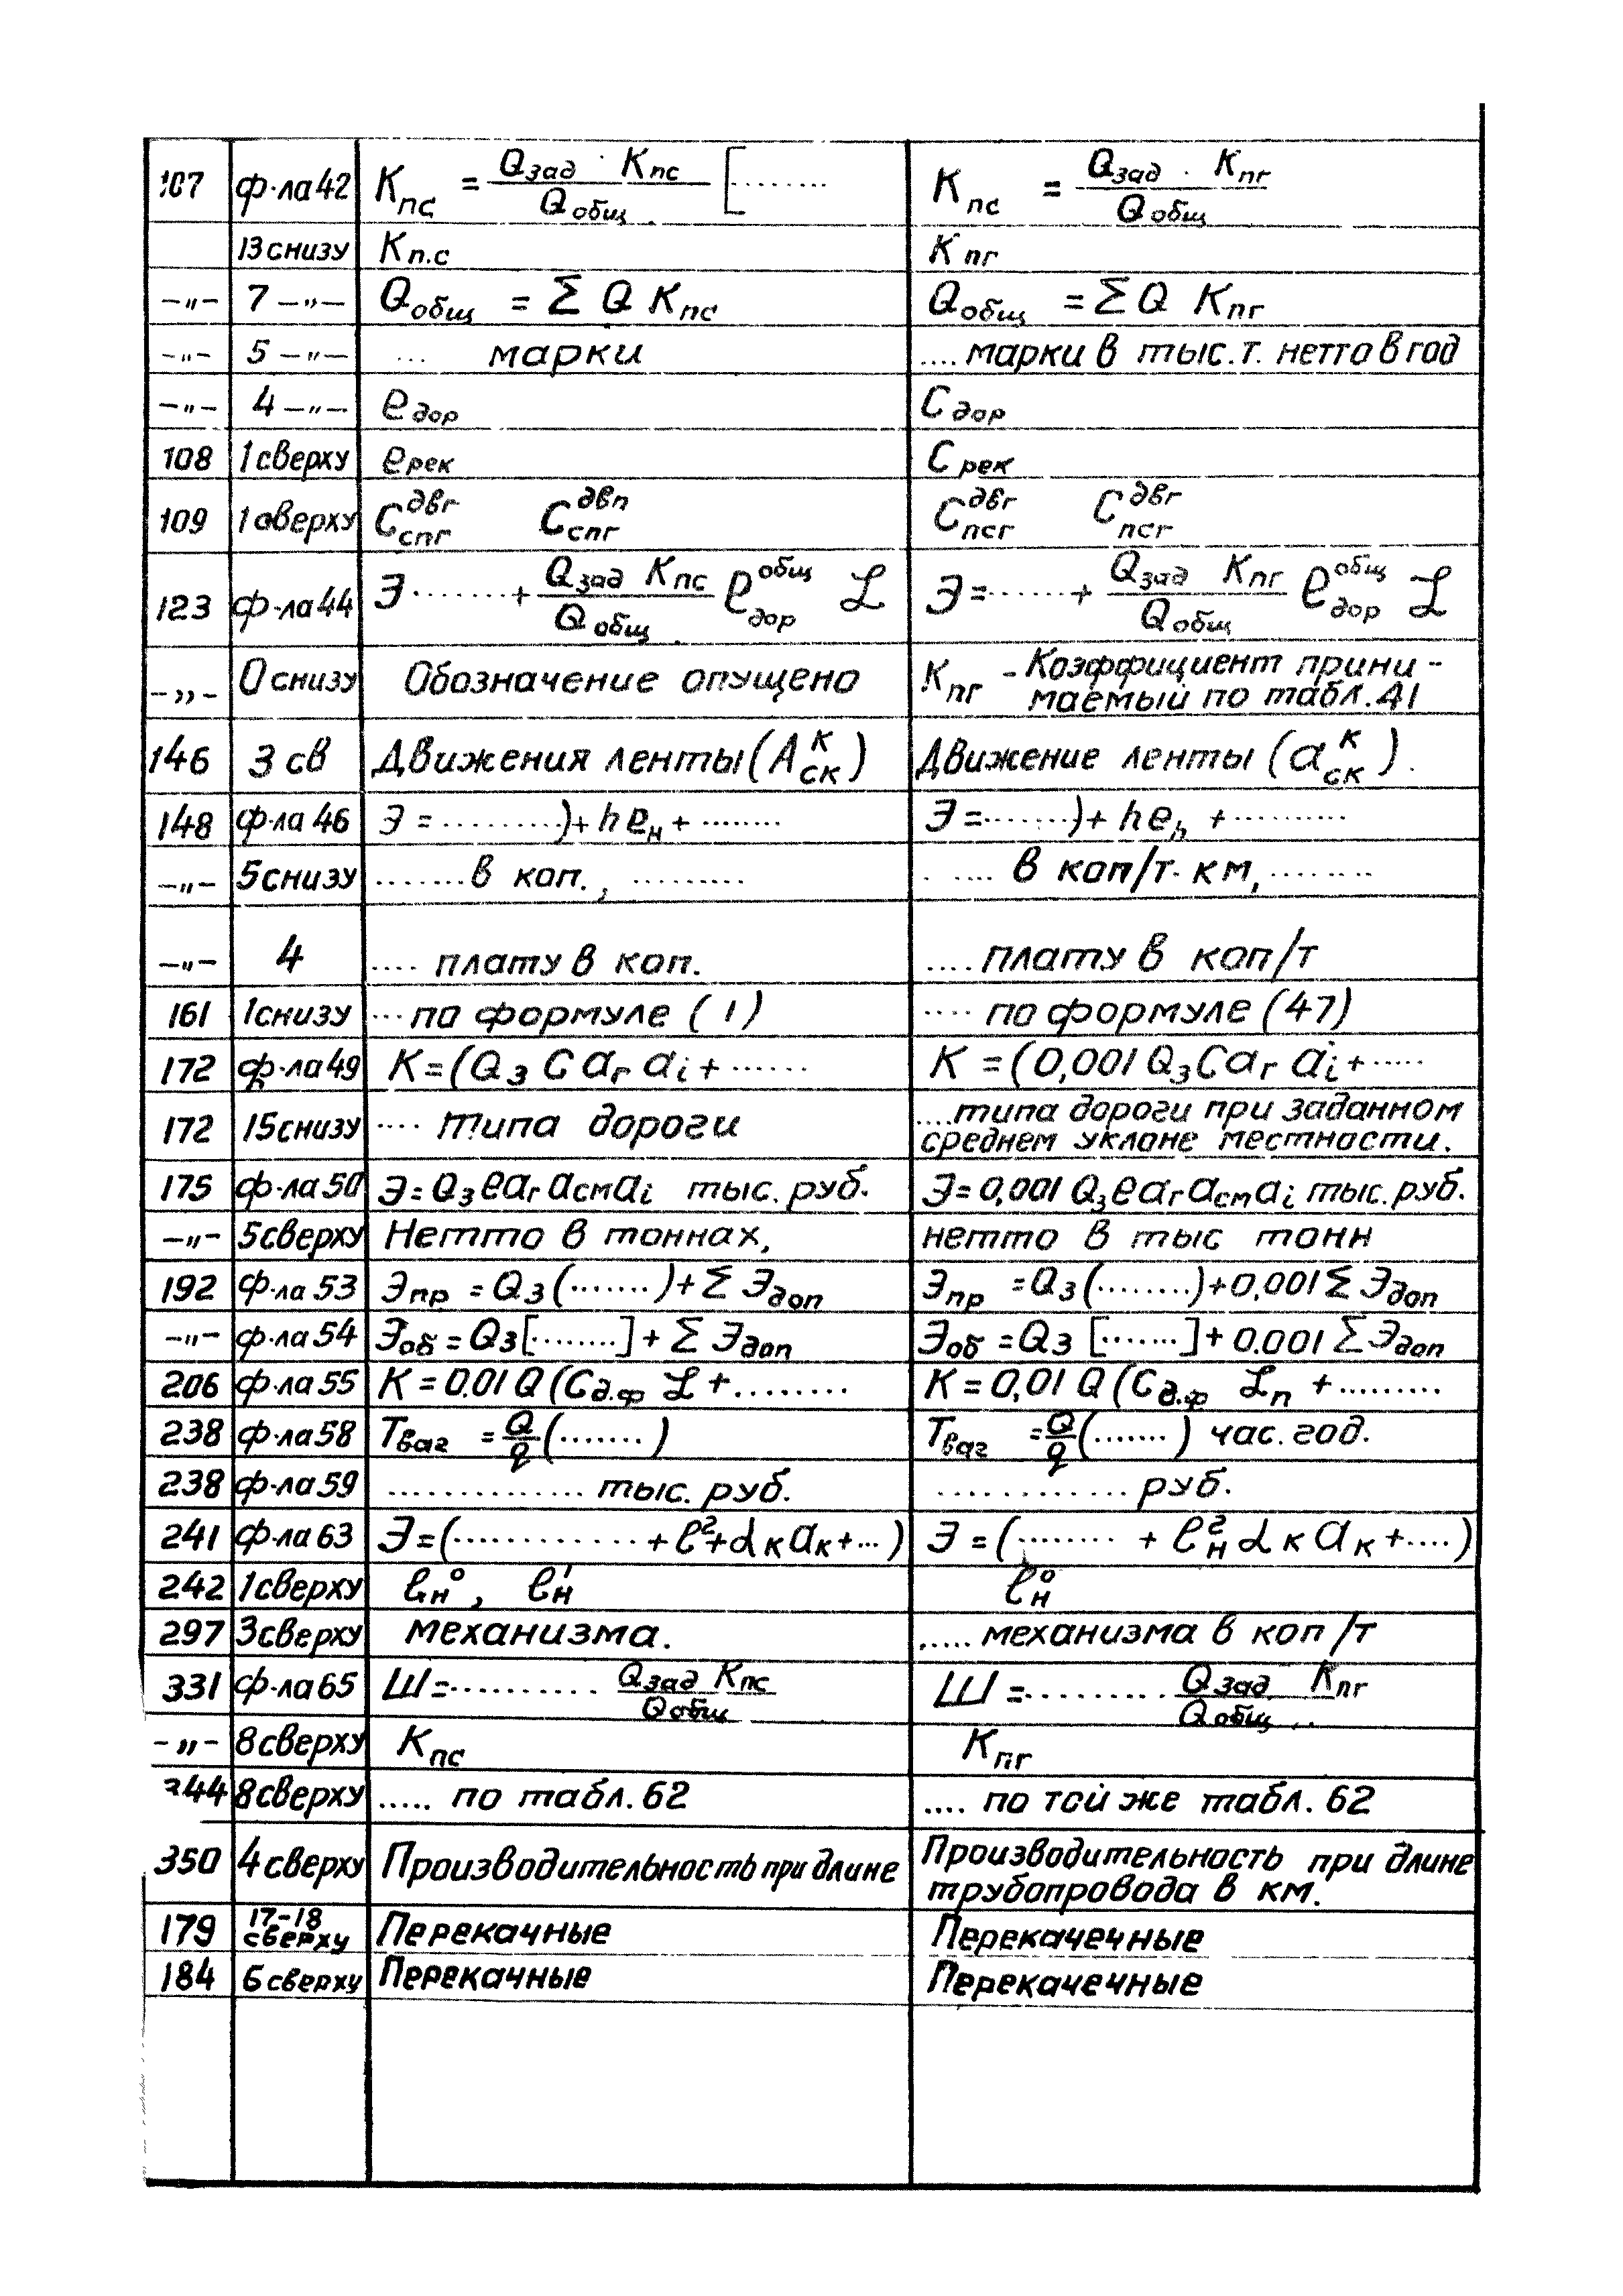 107 ф-ла 42 Kпс = Qзад · Kпс / Qобщ [........ Kпс = Qзад · Kпг / Qобщ
13 снизу Kп.с Kпг
–"– 7 –"– Qобщ = Σ Q Kпс Qобщ = Σ Q Kпг
–"– 5 –"– ... марки .... марки в тыс. т. нетто в год
–"– 4 –"– eдор Cдор
108 1 сверху eрек Cрек
109 1 сверху Cспг^двг Cспг^двп Cпсг^двг Cпсг^двг
123 ф-ла 44 Э.......+ Qзад Kпс / Qобщ eдор^общ ℒ Э=......+ Qзад Kпг / Qобщ eдор^общ ℒ
–"– 0 снизу Обозначение опущено Kпг - Коэффициент прини-
маемый по табл. 41
146 3 св Движения ленты (Aск^к) Движение ленты (aск^к).
148 ф-ла 46 Э = .........)+ h eн + ....... Э =.......)+ h eh + ..........
–"– 5 снизу ........в коп., ......... .... в коп/т·км, ........
–"– 4 .... плату в коп. .... плату в коп/т
161 1 снизу ... по формуле (1) .... по формуле (47)
172 ф-ла 49 K = (Qз C aг ai + ...... K = (0,001 Qз C aг ai + .....
172 15 снизу .... типа дороги ....типа дороги при заданном
среднем уклоне местности.
175 ф-ла 50 Э = Qз e aг aсм ai тыс. руб. Э = 0,001 Qз e aг aсм ai тыс. руб.
–"– 5 сверху Нетто в тоннах, нетто в тыс тонн
192 ф-ла 53 Эпр = Qз (.......) + Σ Эдоп Эпр = Qз (........) + 0,001 Σ Эдоп
–"– ф-ла 54 Эоб = Qз [........] + Σ Эдоп Эоб = Qз [.......] + 0.001 Σ Эдоп
206 ф-ла 55 K = 0.01 Q (Cд.ф ℒ + ........ K = 0,01 Q (Cд.ф ℒп + .........
238 ф-ла 58 Tваг = Q/q (.......) Tваг = Q/q (.......) час. год.
238 ф-ла 59 .............. тыс. руб. ............. руб.
241 ф-ла 63 Э = (............. + ℓ² + α к aк + ...) Э = (......... + ℓн² α к aк + ....)
242 1 сверху ℓн°, ℓн' ℓн°
297 3 сверху механизма. ..... механизма в коп/т
331 ф-ла 65 Ш = .......... Qзад Kпс / Qобщ Ш = ......... Qзад Kпг / Qобщ
–"– 8 сверху Kпс Kпг
344 8 сверху ..... по табл. 62 .... по той же табл. 62
350 4 сверху Производительность при длине Производительность при длине
трубопровода в км.
179 17-18 сверху Перекачные Перекачечные
184 6 сверху Перекачные Перекачечные